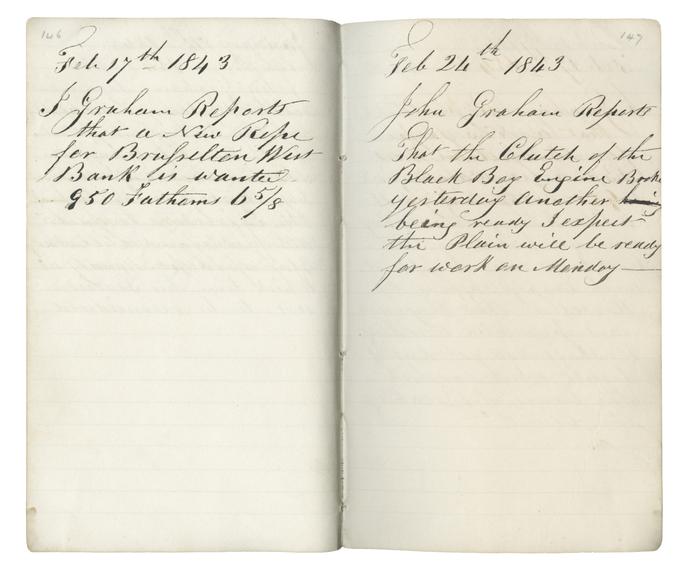 146
Feb 17th 1843
J Graham Reports
that a New Rope
for Brusselton West
Bank is wanted
950 Fathoms 6 5/8
147
Feb 24th 1843
John Graham Reports
That the Clutch of the
Black Boy Engine Broke
yesterday another
being ready I expect
the Plain will be ready
for work on Monday —